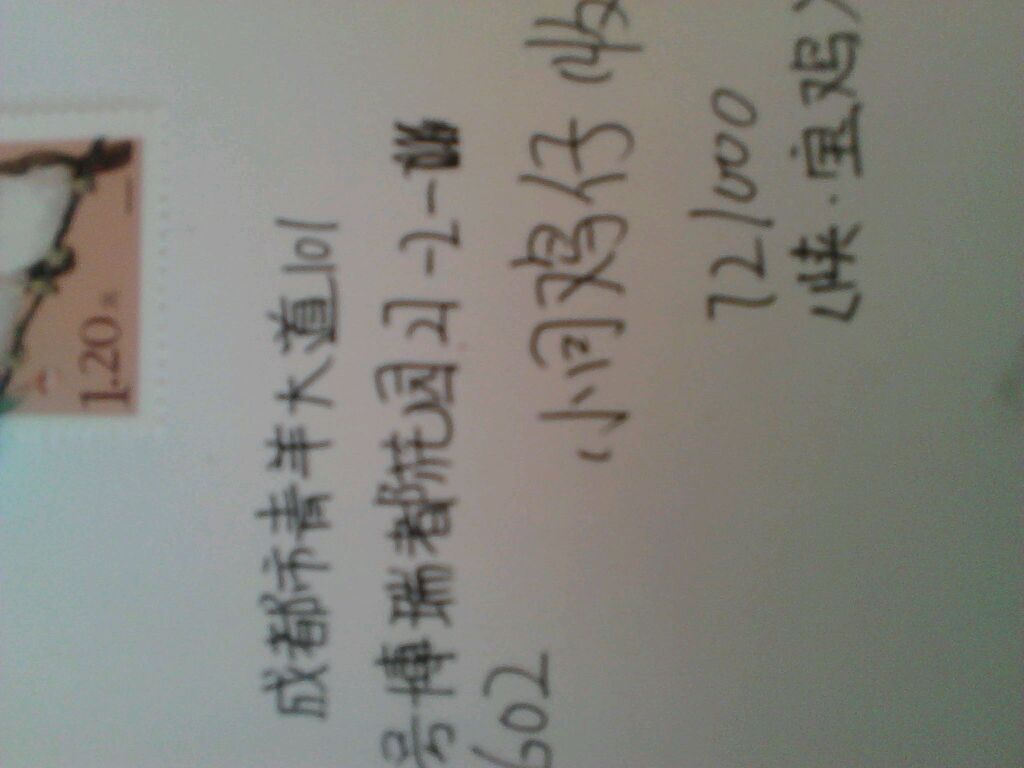 1.20元
成都市青年大道101
号博瑞都花园21-2-
602
(小问鸡仔 收
721000
(陕·宝鸡)